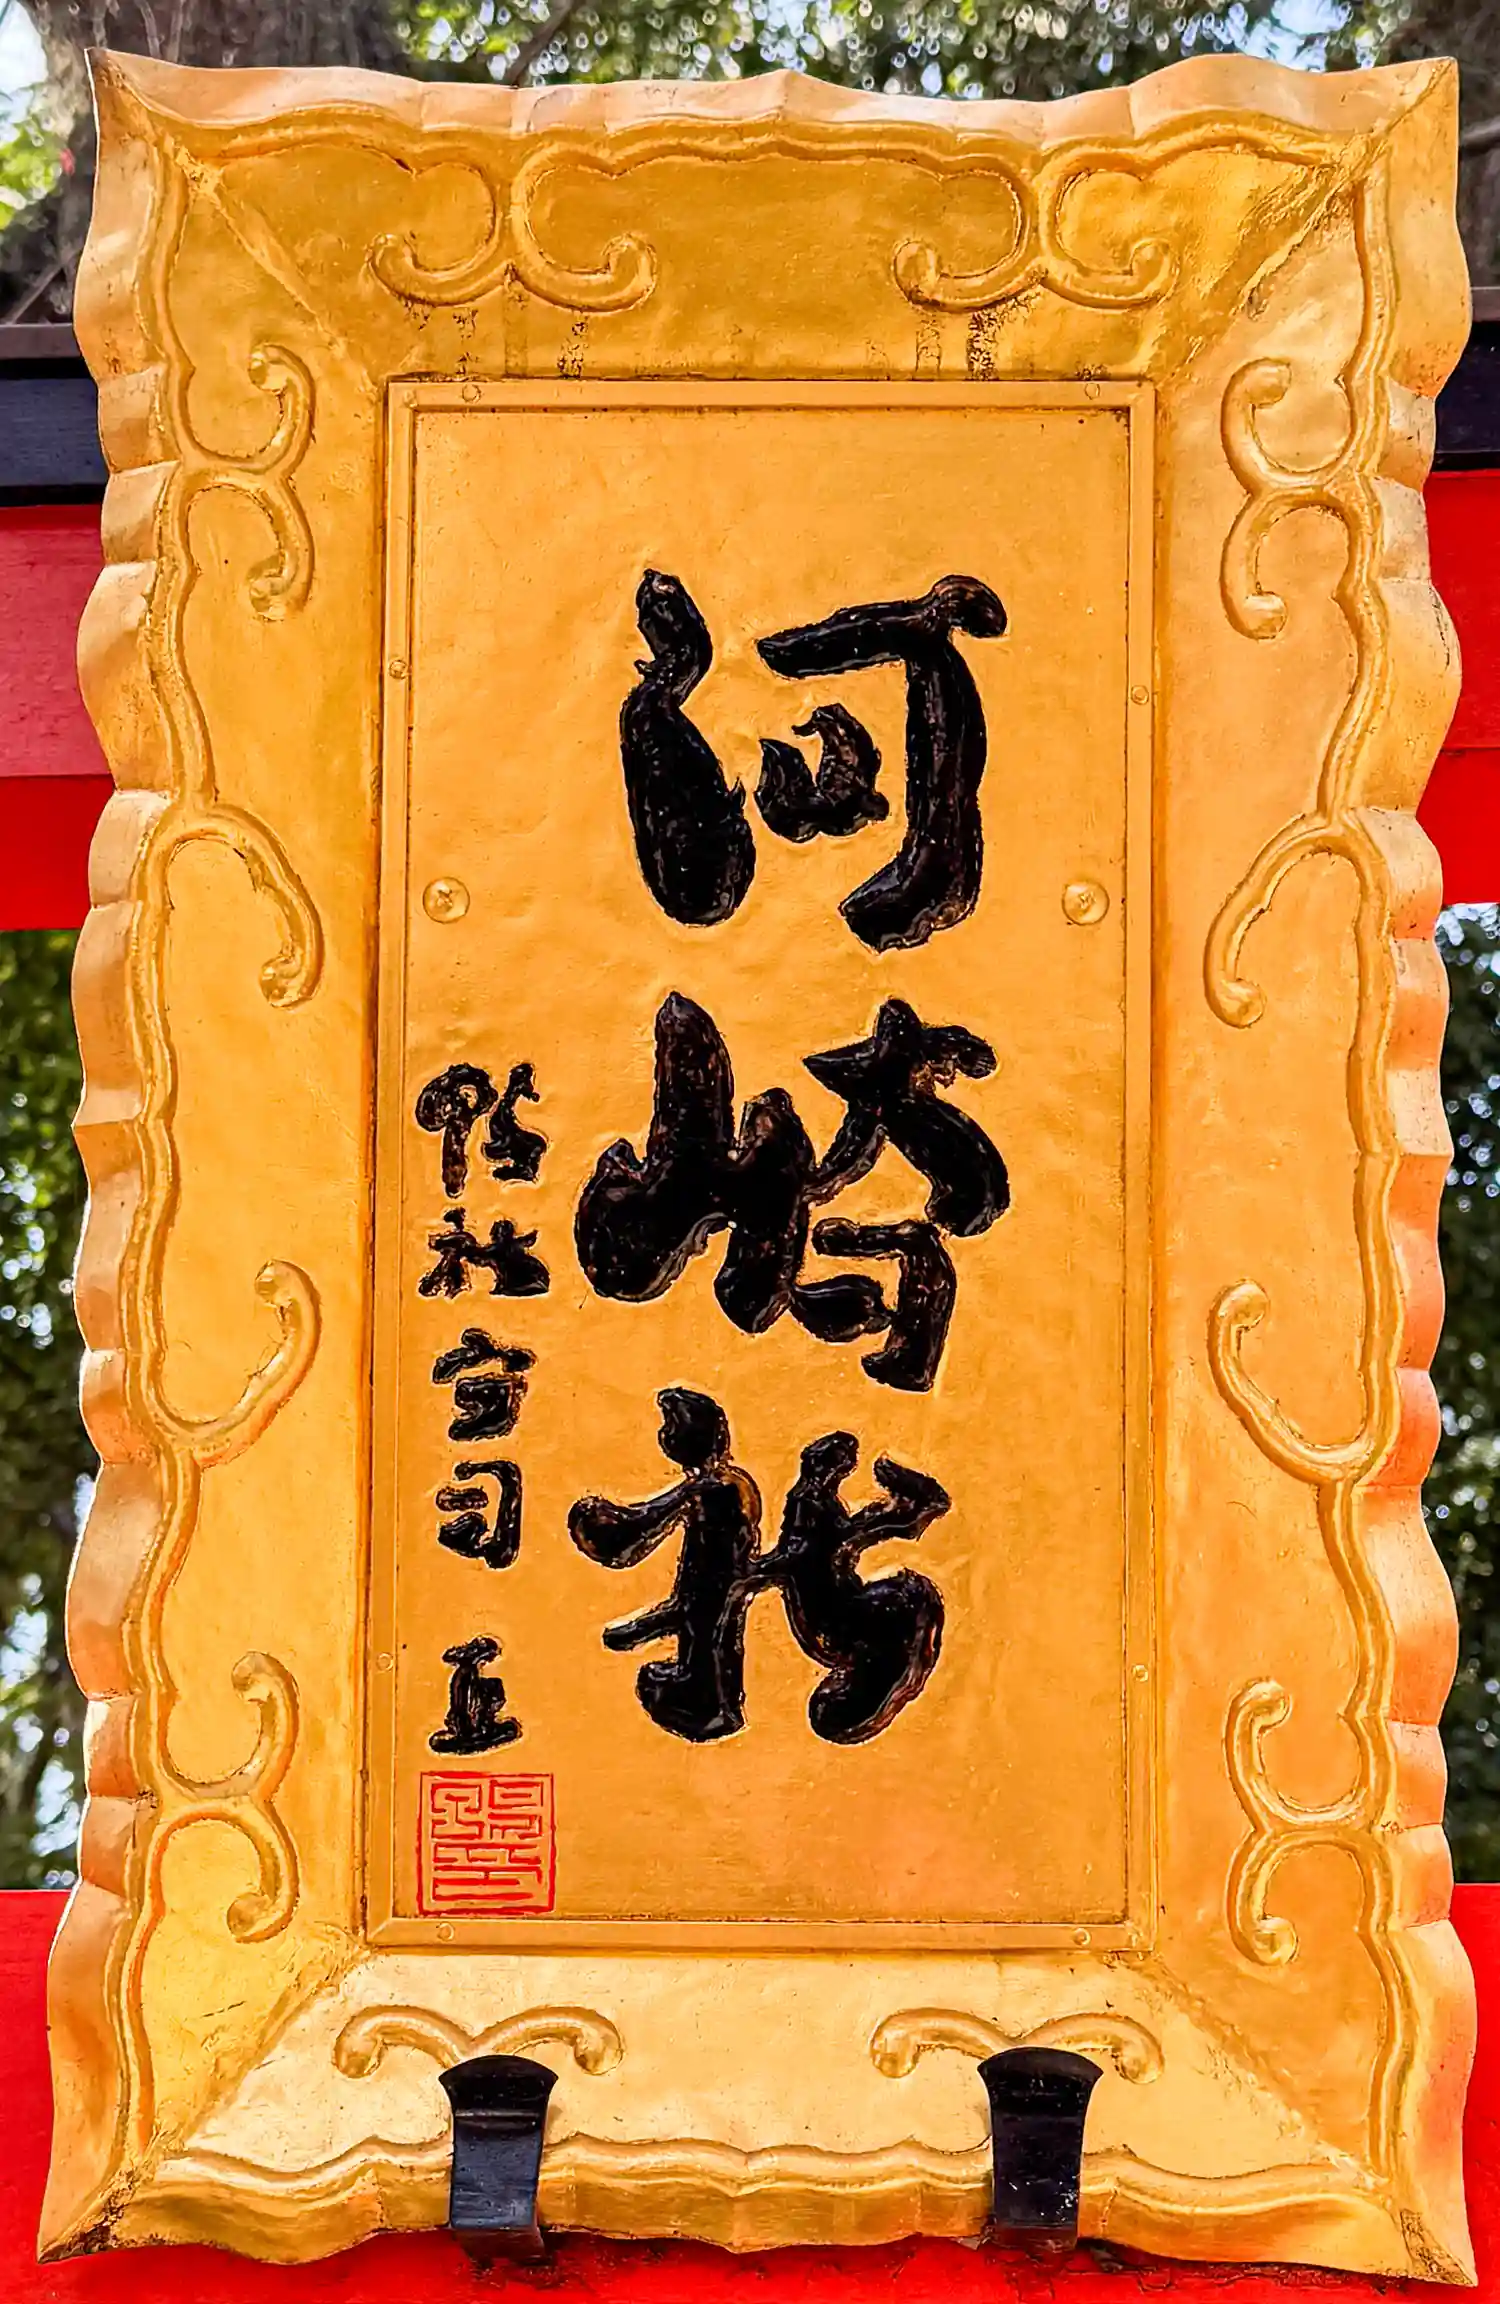 河崎社
鴨社宮司 正